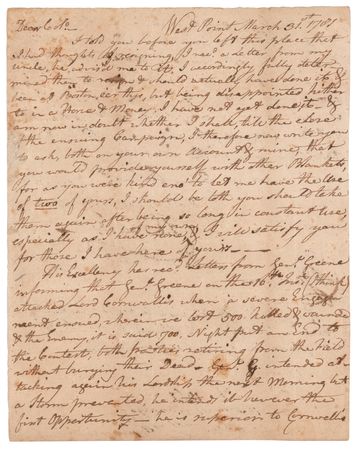 Dear Colo. West Point March 31st. 1781
I told you before you left this place that
I had thoughts of resigning, I recd. a letter from my
uncle, he advis'd me to it, I accordingly fully deter
mined then to resign & should actually have done it &
been at this, but being disappointed hitherto
to in a Horse & Money, I have not yet done it &
am now in doubt whether I shall, till the close
of the ensuing Campaign, I therefore now write you
to ask, both on your own Account & mine, that
you would provide yourself with other Blankets,
for as you were kind eno to let me have the Use
of two of yours, I should be loth you should take
them again after being so long in constant use,
especially as I have none of my own, I will satisfy you
for those I have here of yours
His Excellency has recd. Letters from Genl. Greene
informing that Genl. Greene on the 16th Inst. (I think)
attacked Lord Cornwallis, when a severe
ment ensued, wherein we lost 500 killed & wounded
& the Enemy, it is said 700, Night put an End to
the Contest, both parties retiring from the Field
without burying their Dead, Greene intended at
tacking again his Lordship the next Morning but
a Storm prevented, he intends it however the
first Opportunity — he is superior to Cornwallis